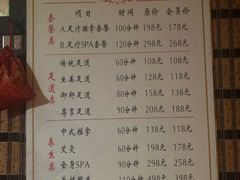 项目 时间 原价 会员价
套餐类
A.足疗推拿套餐 100分钟 198元 178元
B.足疗SPA套餐 120分钟 298元 268元
足道类
传统足道 60分钟 108元 100元
生姜足道 60分钟 128元 118元
御轩足道 80分钟 158元 138元
尊享足道 90分钟 208元 188元
养生类
中式推拿 60分钟 138元 118元
艾灸 60分钟 258元 238元
全身SPA 90分钟 298元 258元